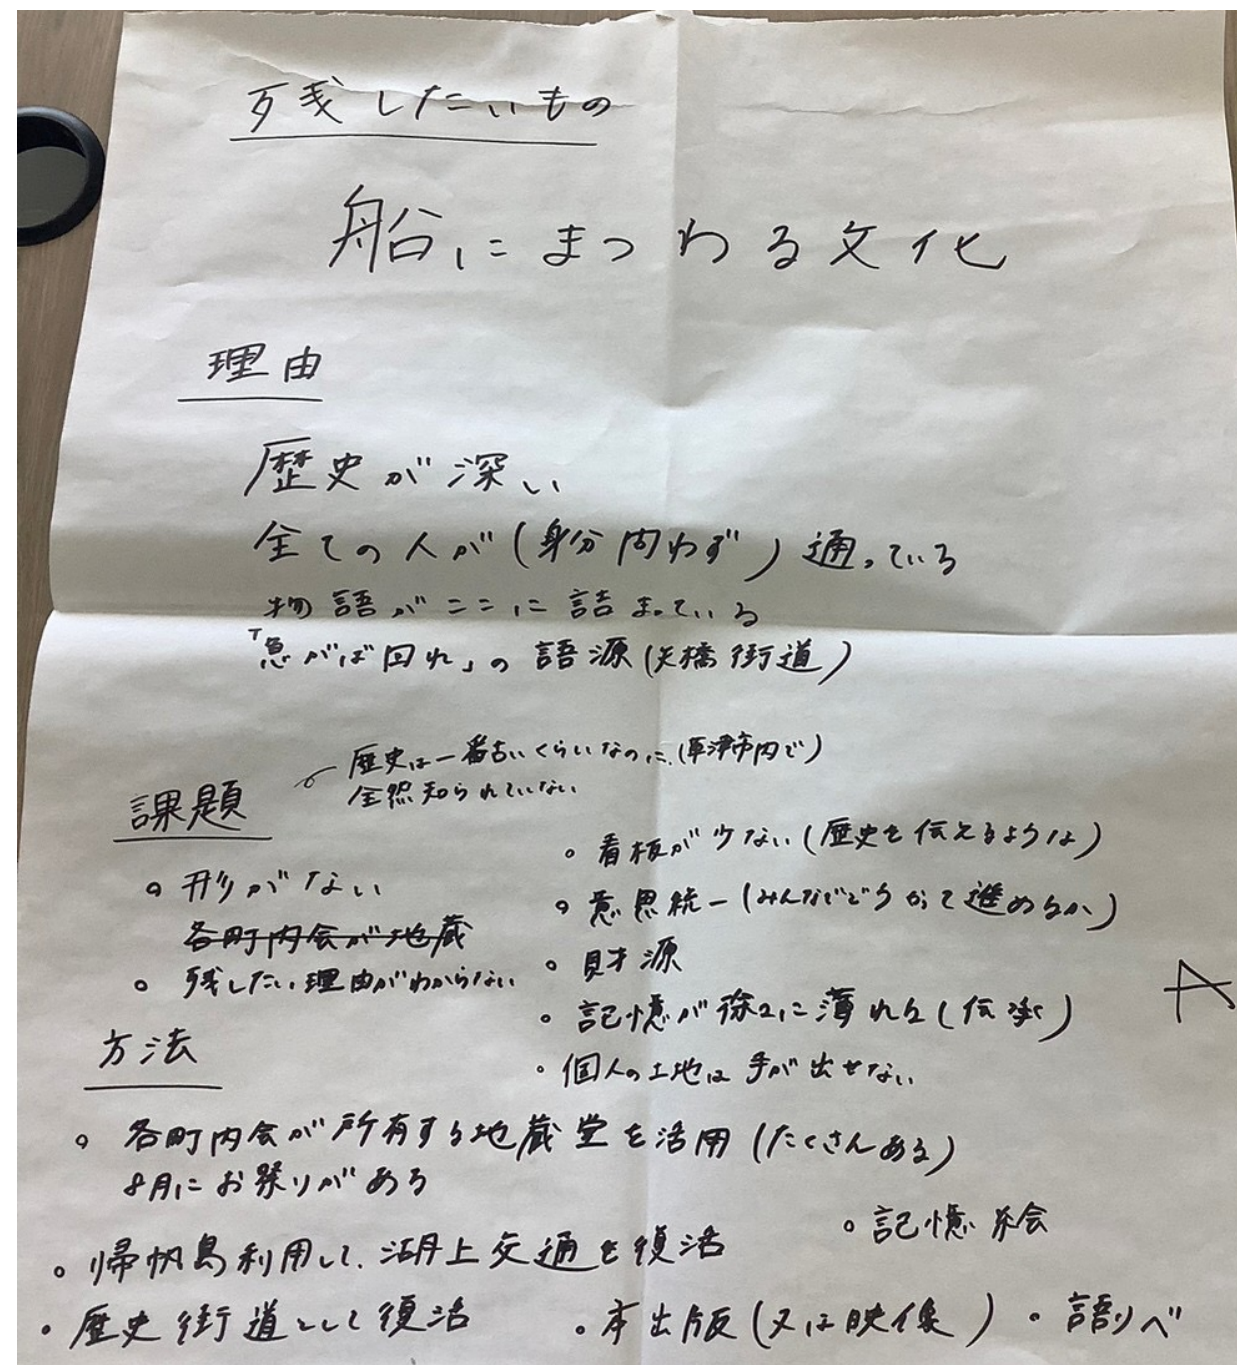 残したいもの
船にまつわる文化
理由
歴史が深い
全ての人が(身分問わず)通っている
物語がここに詰まっている
「急がば回れ」の語源(矢橋街道)
課題
歴史は一番古いくらいなのに、(草津市内で)
全然知られていない
・形がない
各町内会が地蔵
・残したい理由がわからない
・看板が少ない(歴史を伝えるような)
・意思統一(みんなでどうやって進めるか)
・財源
・記憶が徐々に薄れる(伝承)
・個人の土地は手が出せない
A
方法
・各町内会が所有する地蔵堂を活用(たくさんある)
8月にお祭りがある
・記憶絵
・帰帆島利用して、湖上交通を復活
・歴史街道として復活
・本出版(又は映像)
・語りべ